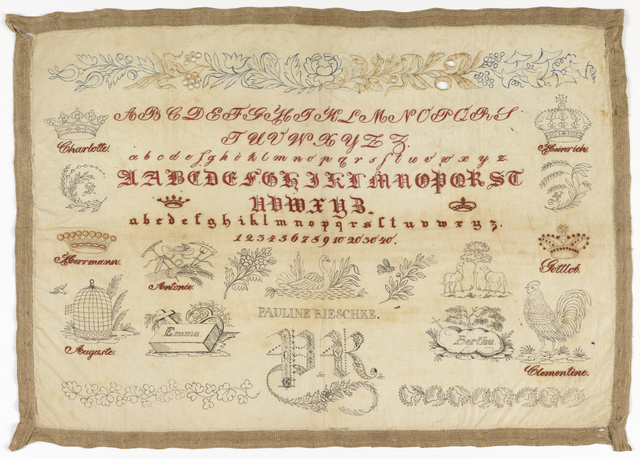 A B C D E F G H I K L M N O P Q R S
T U V W X Y Z Z.
Charlotte.
Heinrich.
a b c d e f g h i k l m n o p q r s f t u v w x y z.
A A B C D E F G H I K L M N O P Q R S T
U V W X Y Z.
a b c d e f g h i k l m n o p q r s f t u v w x y z.
1 2 3 4 5 6 7 8 9 10 20 30 40.
Herrmann.
Gottlob.
Antonie.
PAULINE RIESCHKE.
Emma
Bertha
P. R.
Auguste.
Clementine.